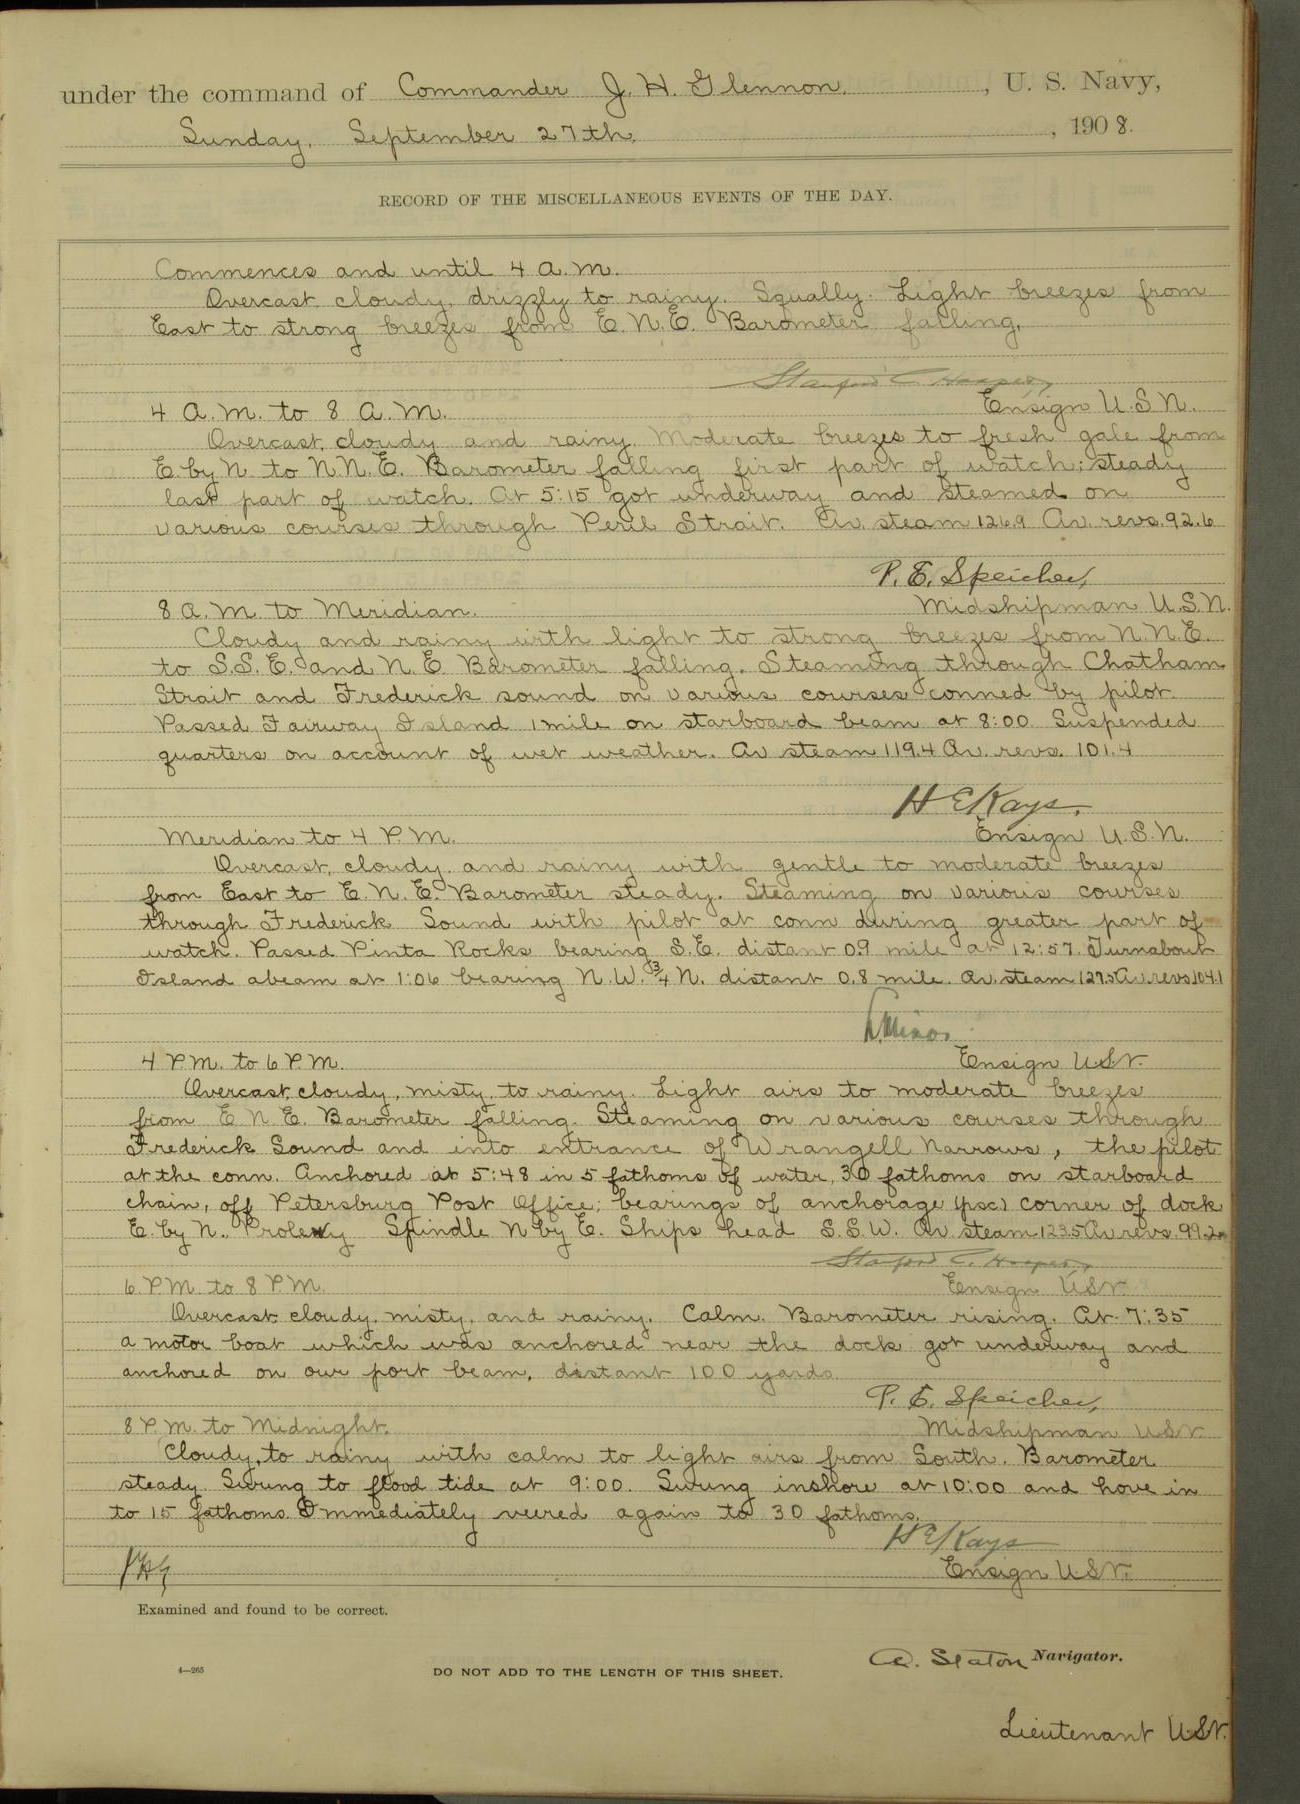 under the command of Commander J. H. Glennon, U. S. Navy,
Sunday, September 27th, 1908.
RECORD OF THE MISCELLANEOUS EVENTS OF THE DAY.
Commences and until 4 A.M.
Overcast, cloudy, drizzly to rainy. Squally. Light breezes from
East to strong breezes from E.N.E. Barometer falling.
Stanford C. Hooper,
4 A.M. to 8 A.M. Ensign U.S.N.
Overcast, cloudy and rainy. Moderate breezes to fresh gale from
E. by N. to N.N.E. Barometer falling first part of watch; steady
last part of watch. At 5:15 got underway and steamed on
various courses through Peril Strait. Av. steam 126.9 Av. revs. 92.6
P. E. Speicher,
8 A.M. to Meridian. Midshipman U.S.N.
Cloudy and rainy with light to strong breezes from N.N.E.
to S.S.E. and N.E. Barometer falling. Steaming through Chatham
Strait and Frederick sound on various courses conned by pilot.
Passed Fairway Island 1 mile on starboard beam at 8:00. Suspended
quarters on account of wet weather. Av steam 119.4 Av. revs. 101.4
H E Kays,
Meridian to 4 P.M. Ensign U.S.N.
Overcast, cloudy, and rainy with gentle to moderate breezes
from East to E.N.E. Barometer steady. Steaming on various courses
through Frederick Sound with pilot at conn during greater part of
watch. Passed Pinta Rocks bearing S.E. distant 0.9 mile at 12:57. Turnabout
Island abeam at 1:06 bearing N.W. 3/4 N. distant 0.8 mile. Av. steam 127.5 Av. revs 104.1
Minor
4 P.M. to 6 P.M. Ensign USN.
Overcast, cloudy, misty, to rainy. Light airs to moderate breezes
from E N E. Barometer falling. Steaming on various courses through
Frederick Sound and into entrance of Wrangell Narrows, the pilot
at the conn. Anchored at 5:48 in 5 fathoms of water, 30 fathoms on starboard
chain, off Petersburg Post Office; bearings of anchorage (psc) corner of dock
E. by N., Spindle N by E. Ships head S.S.W. Av steam 123.5 Av revs. 99.2
Stanford C. Hooper,
6 P.M. to 8 P.M. Ensign USN.
Overcast, cloudy, misty, and rainy. Calm. Barometer rising. At 7:35
a motor boat which was anchored near the dock got underway and
anchored on our port beam, distant 100 yards.
P. E. Speicher,
8 P.M. to Midnight. Midshipman USN
Cloudy, to rainy with calm to light airs from South. Barometer
steady. Swung to flood tide at 9:00. Swung inshore at 10:00 and hove in
to 15 fathoms. Immediately veered again to 30 fathoms.
H E Kays
JHG Ensign USN.
Examined and found to be correct.
Navigator.
4—265 DO NOT ADD TO THE LENGTH OF THIS SHEET.
Lieutenant USN.